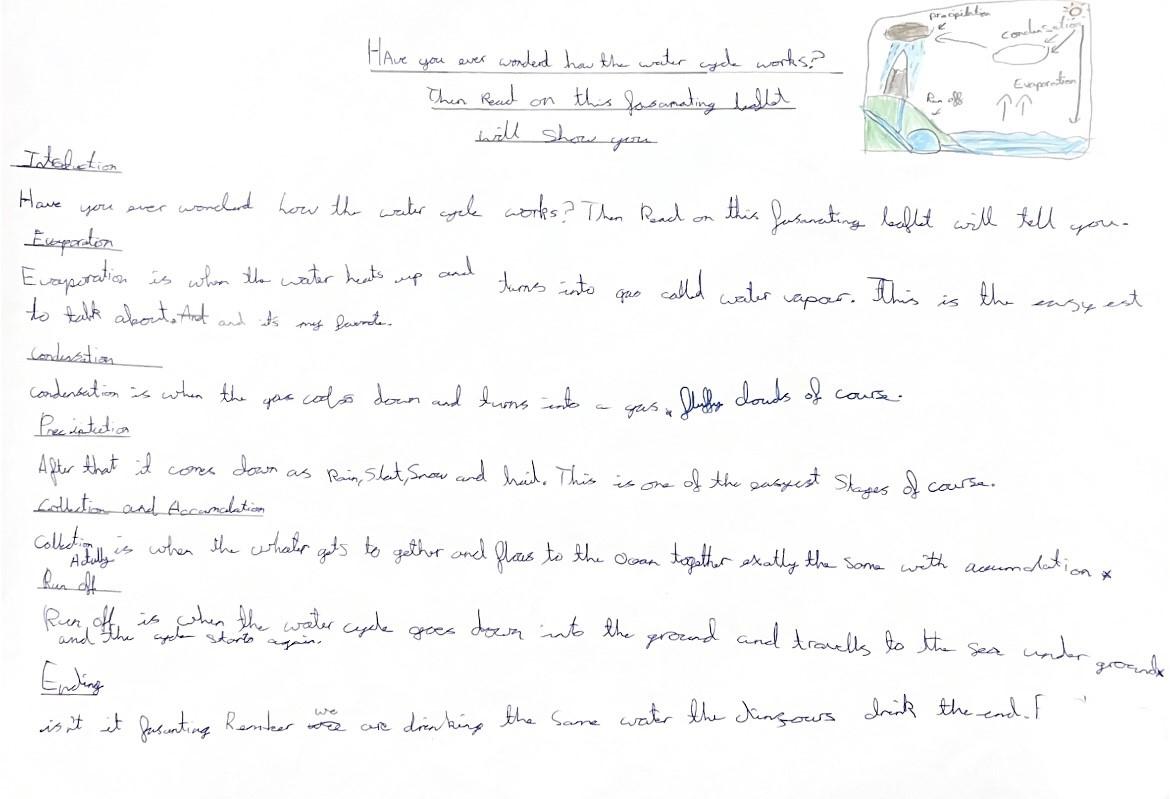 HAve you ever wonderd how the water cycle works?
Then Read on this fasanating leaflet
will show you
precipitation
condensation
Evaporation
Run off
Intoduction
Have you ever wonderd how the water cycle works? Then Read on this fasanating leaflet will tell you.
Evaporation
Evaporation is when the water heats up and turns into gas called water vapor. This is the easyest
to talk about. And and it's my favorite.
Condensation
Condensation is when the gas cools down and turns into a gas, fluffy clouds of course.
Precipitation
After that it comes down as Rain, Sleat, Snow and hail. This is one of the easyest Stages of course.
Collection and Accumalation
Collection is when the whater gets to gether and flows to the Ocean together exatly the same with accumalation
Actully
Run off
Run off is when the water cycle goes down into the ground and travells to the sea under ground
and the cycle starts again.
Ending
isn't it fasanting Rember we are drinking the same water the dinsours drink the end.